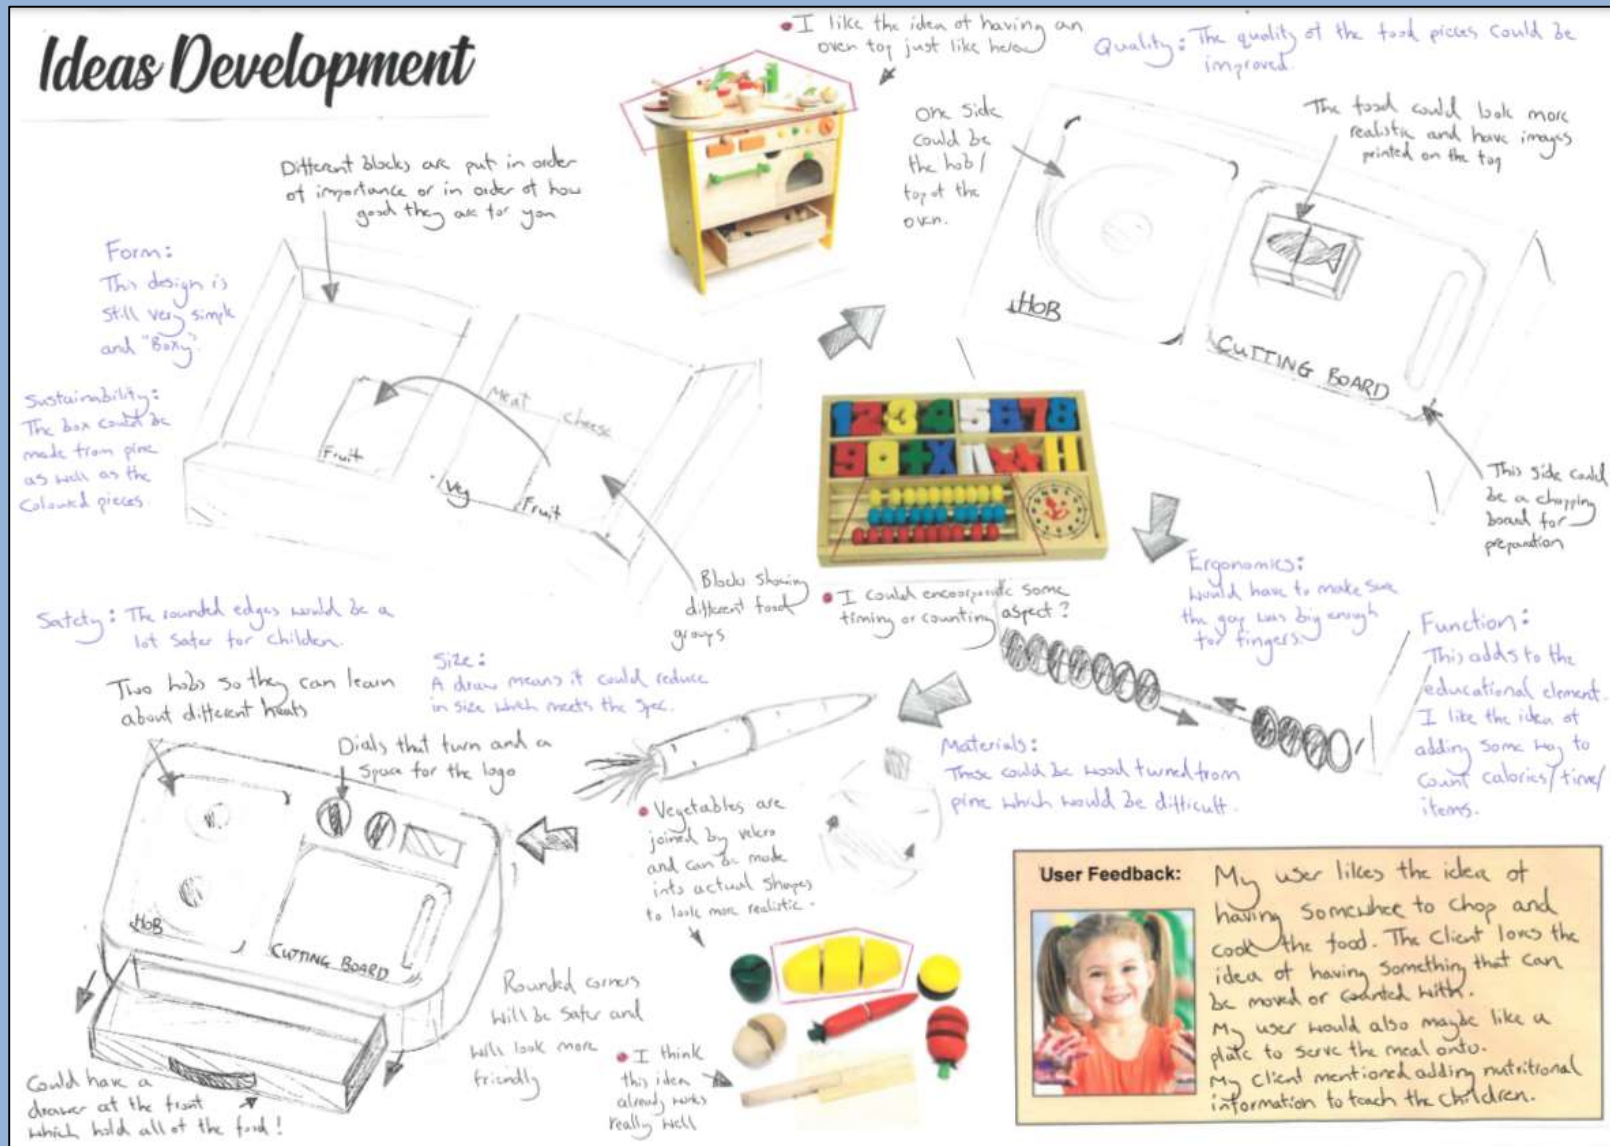 Ideas Development
• I like the idea of having an
oven top just like here
Quality: The quality of the food pieces could be
improved.
One side
could be
the hob/
top of the
oven.
The food could look more
realistic and have images
printed on the top
Different blocks are put in order
of importance or in order of how
good they are for you
Form:
This design is
still very simple
and "Boxy".
Sustainability:
The box could be
made from pine
as well as the
coloured pieces.
Fruit
Meat
Cheese
Veg
Fruit
HOB
CUTTING BOARD
This side could
be a chopping
board for
preparation
Blocks showing
different food
groups
• I could encoorporate some
timing or counting aspect?
Ergonomics:
Would have to make sure
the gap was big enough
for fingers.
Function:
This adds to the
educational element.
I like the idea of
adding some way to
count calories/time/
items.
Safety: The rounded edges would be a
lot safer for children.
Size:
A draw means it could reduce
in size which meets the spec.
Two hobs so they can learn
about different heats
Dials that turn and a
space for the logo
HOB
CUTTING BOARD
Materials:
These could be wood turned from
pine which would be difficult.
• Vegetables are
joined by velcro
and can be made
into actual shapes
to look more realistic.
Rounded corners
will be safer and
will look more
friendly
• I think
this idea
already works
really well
Could have a
drawer at the front
which hold all of the food!
User Feedback:
My user likes the idea of
having somewhere to chop and
cook the food. The client loves the
idea of having something that can
be moved or counted with.
My user would also maybe like a
plate to serve the meal onto.
My client mentioned adding nutritional
information to teach the children.